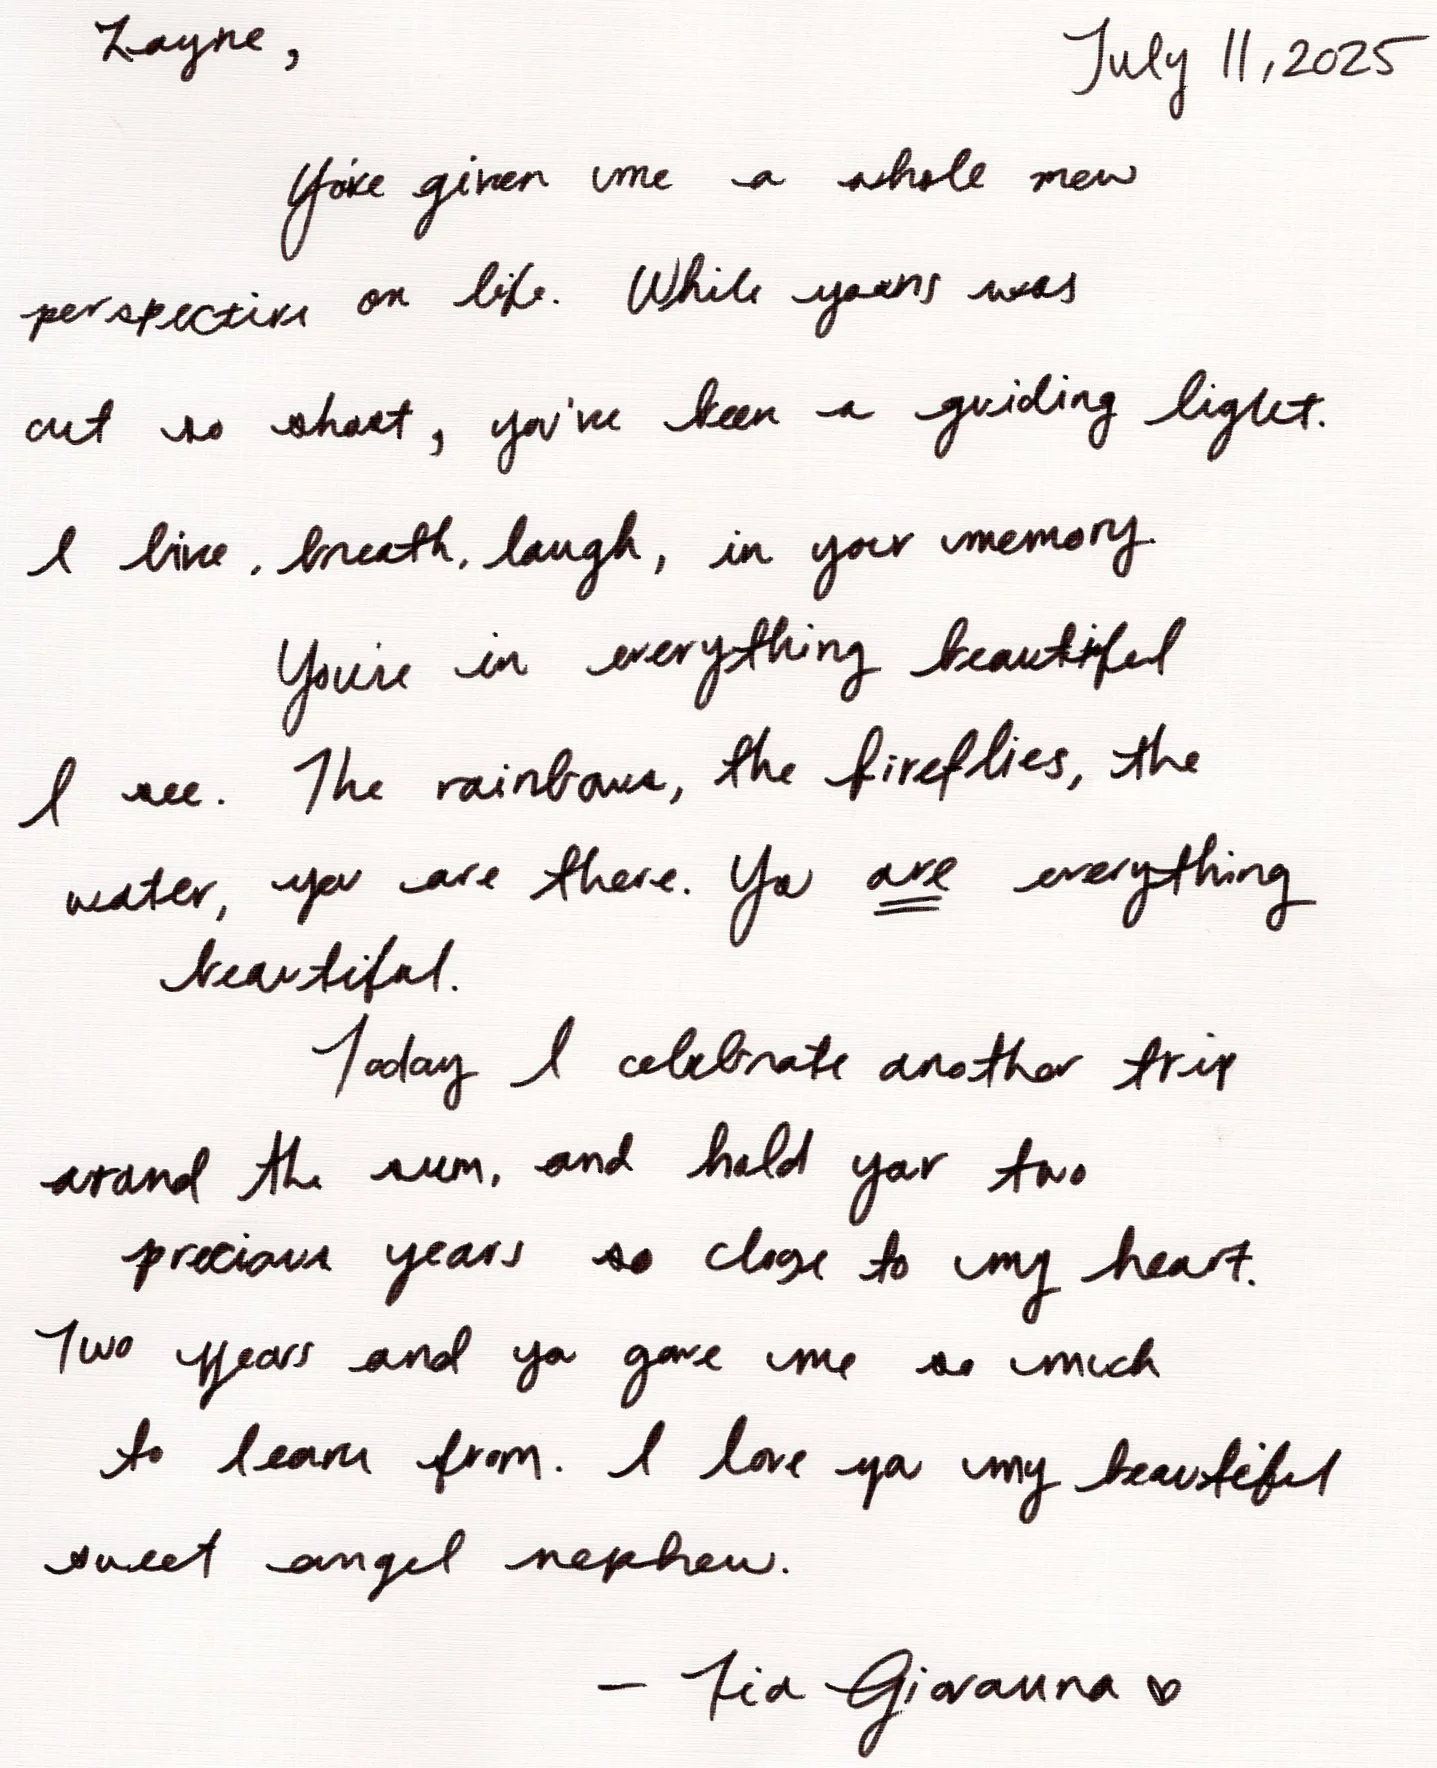 Zayne,
July 11, 2025
You've given me a whole new
perspective on life. While yours was
cut so short, you've been a guiding light.
I live, breath, laugh, in your memory.
You're in everything beautiful
I see. The rainbows, the fireflies, the
water, you are there. You are everything
beautiful.
Today I celebrate another trip
around the sun, and hold your two
precious years so close to my heart.
Two years and you gave me so much
to learn from. I love you my beautiful
sweet angel nephew.
— Tia Giovanna ♡